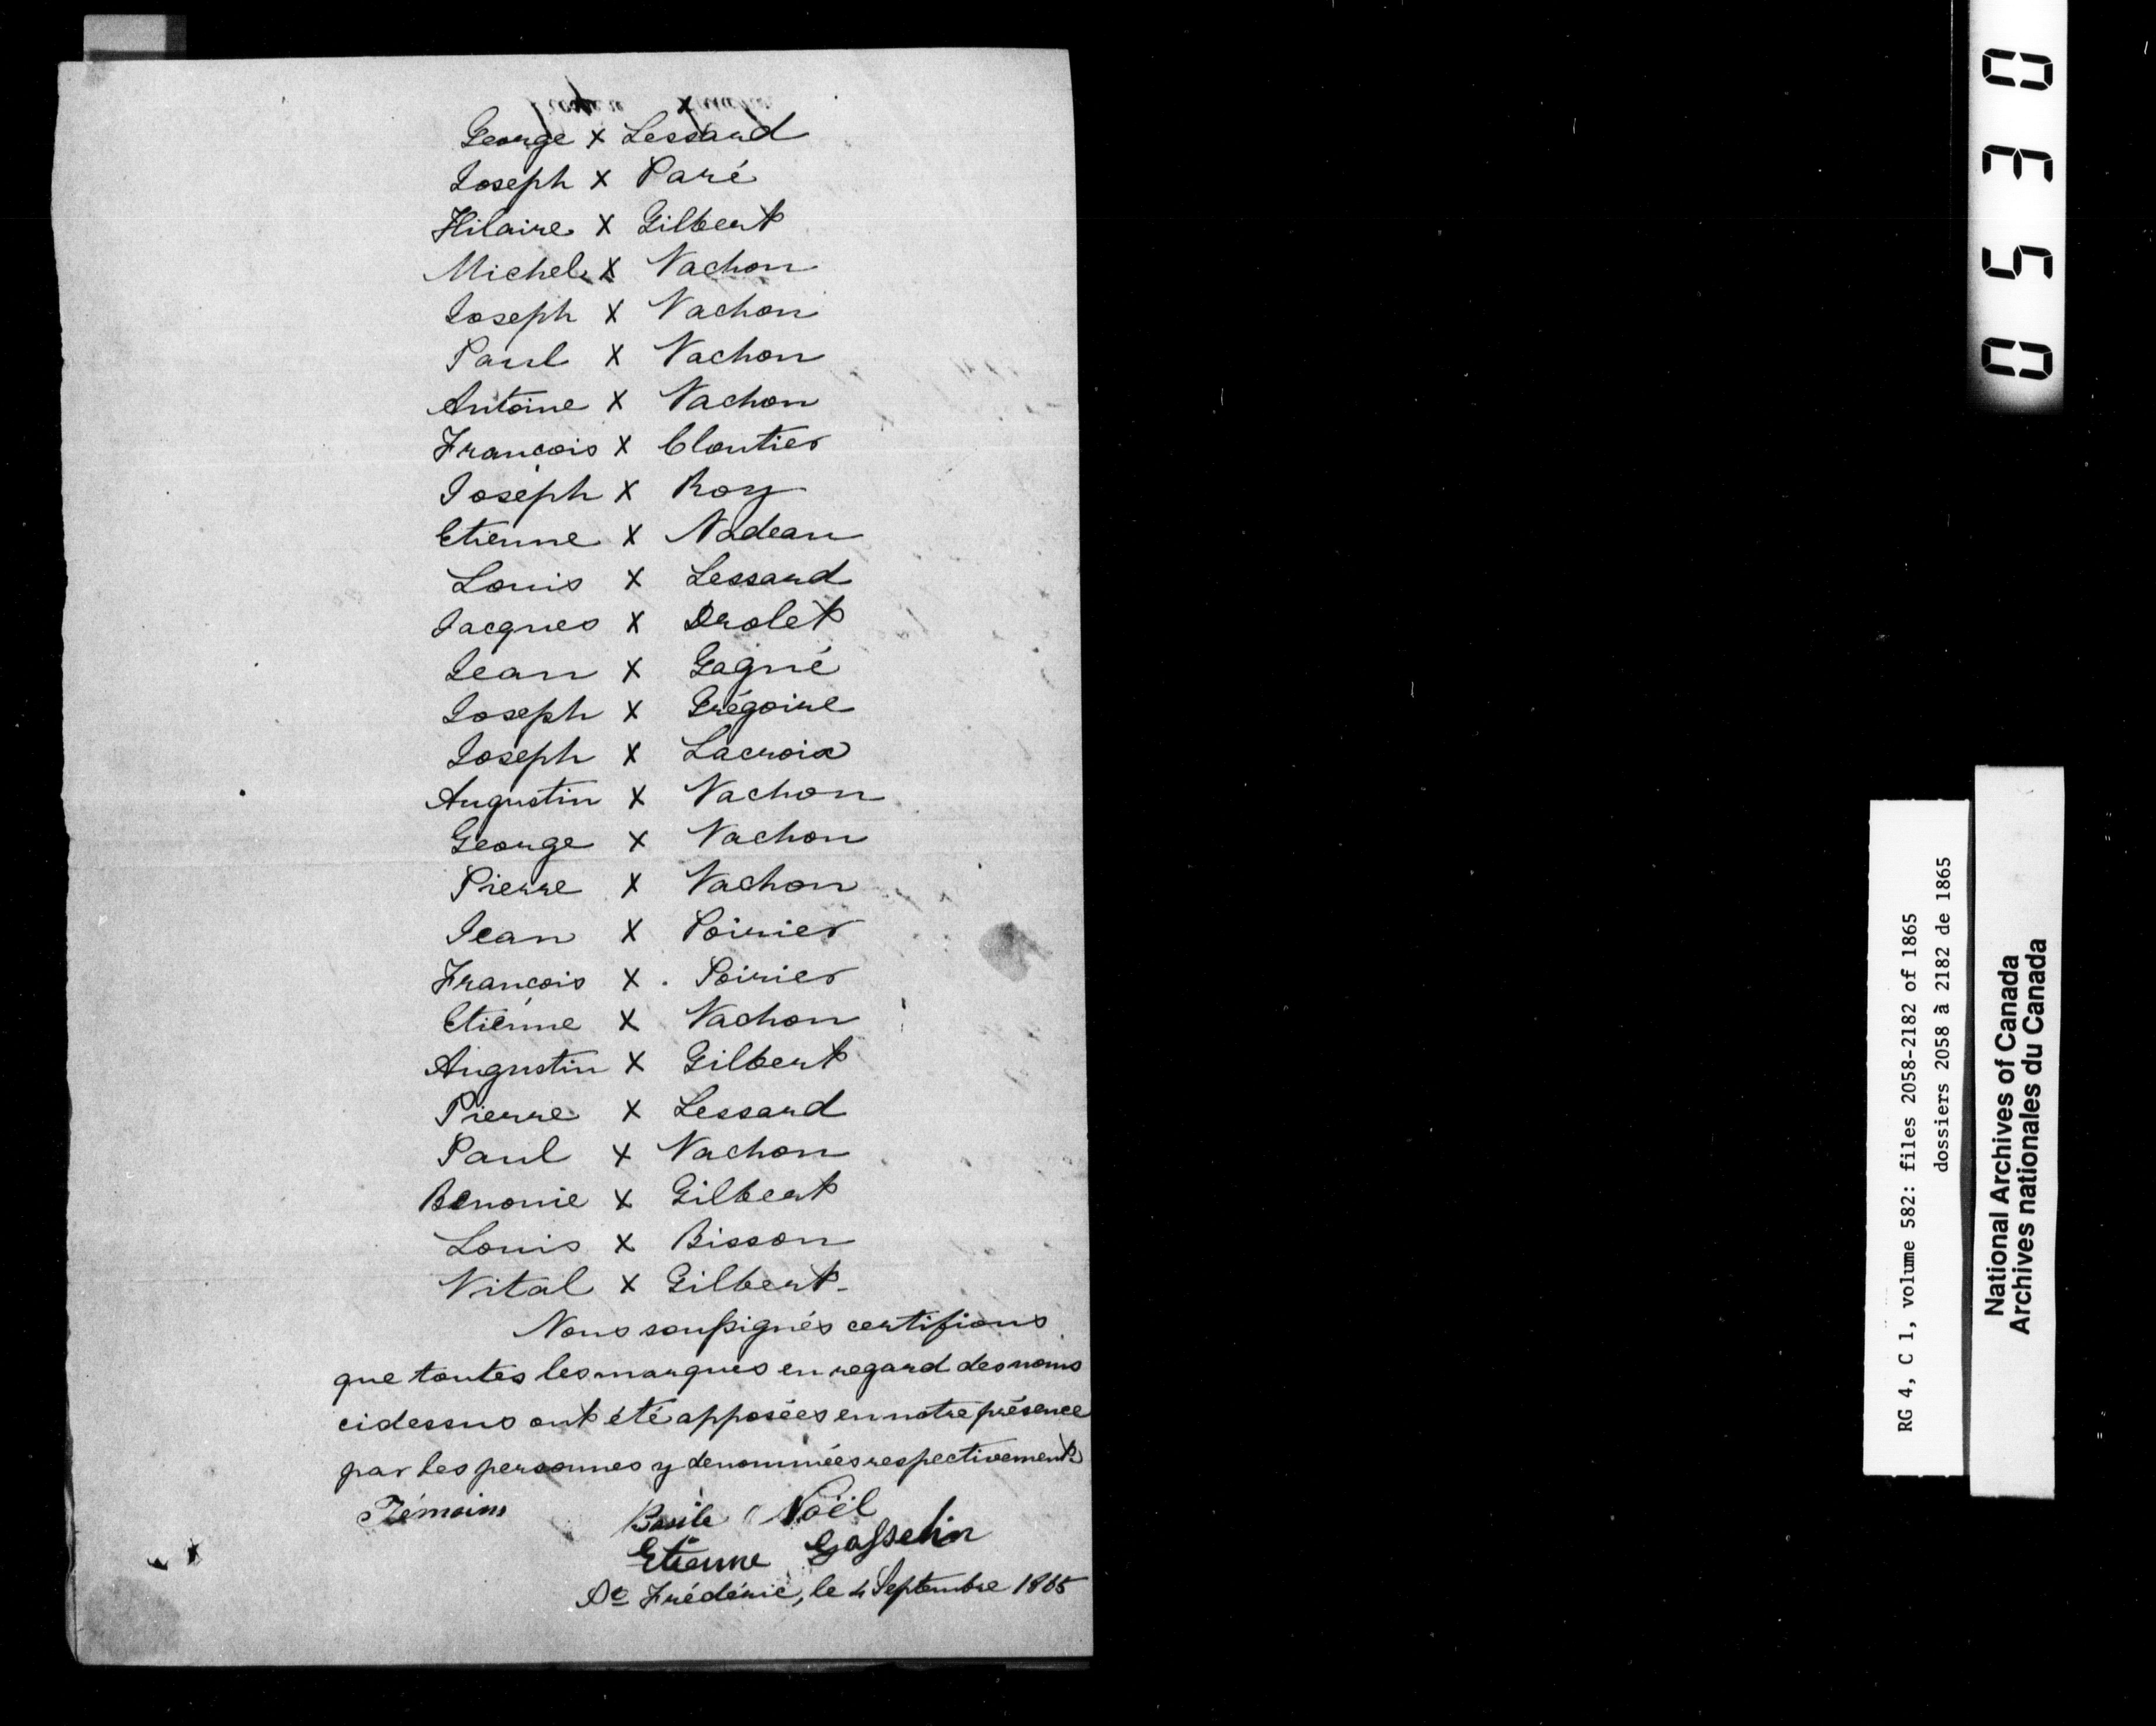 George x Lessard
Joseph x Paré
Hilaire x Gilbert
Michel x Vachon
Joseph x Vachon
Paul x Vachon
Antoine x Vachon
François x Cloutier
Joseph x Roy
Etienne x Nadeau
Louis x Lessard
Jacques x Drolet
Jean x Gagné
Joseph x Grégoire
Joseph x Lacroix
Augustin x Vachon
George x Vachon
Pierre x Vachon
Jean x Poirier
François x Poirier
Etienne x Vachon
Augustin x Gilbert
Pierre x Lessard
Paul x Vachon
Benonie x Gilbert
Louis x Bisson
Vital x Gilbert
Nous soussignés certifions
que toutes les marques en regard des noms
cidessus ont été apposées en notre présence
par les personnes y denommées respectivement
Témoins Basile Noël
Etienne Gosselin
St Frédéric, le 4 Septembre 1865
0530
RG 4, C 1, volume 582: files 2058-2182 of 1865
dossiers 2058 à 2182 de 1865
National Archives of Canada
Archives nationales du Canada